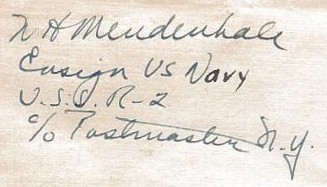 W H Mendenhall
Ensign US Navy
U.S.S. R-2
c/o Postmaster N.Y.